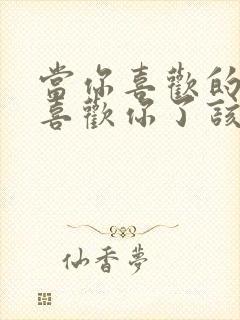 當你喜歡的
喜歡你了該
仙香夢